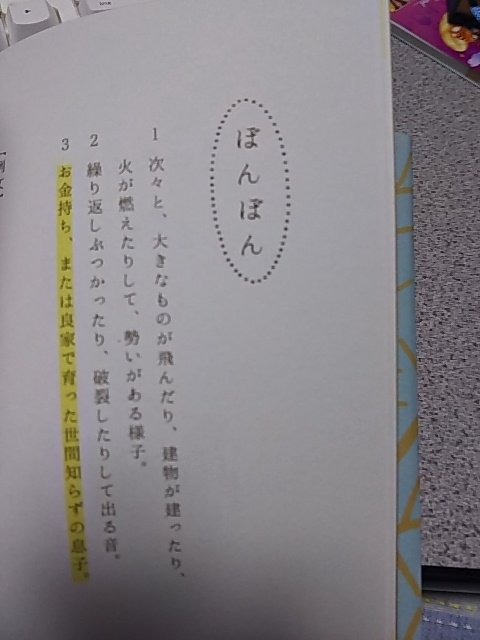 ぼんぼん
1 次々と、大きなものが飛んだり、建物が建ったり、
火が燃えたりして、勢いがある様子。
2 繰り返しぶつかったり、破裂したりして出る音。
3 お金持ち、または良家で育った世間知らずの息子。